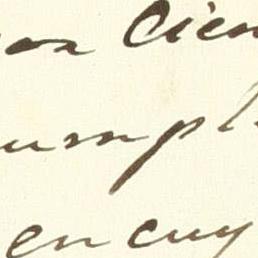 Cien
umpl
en cuy